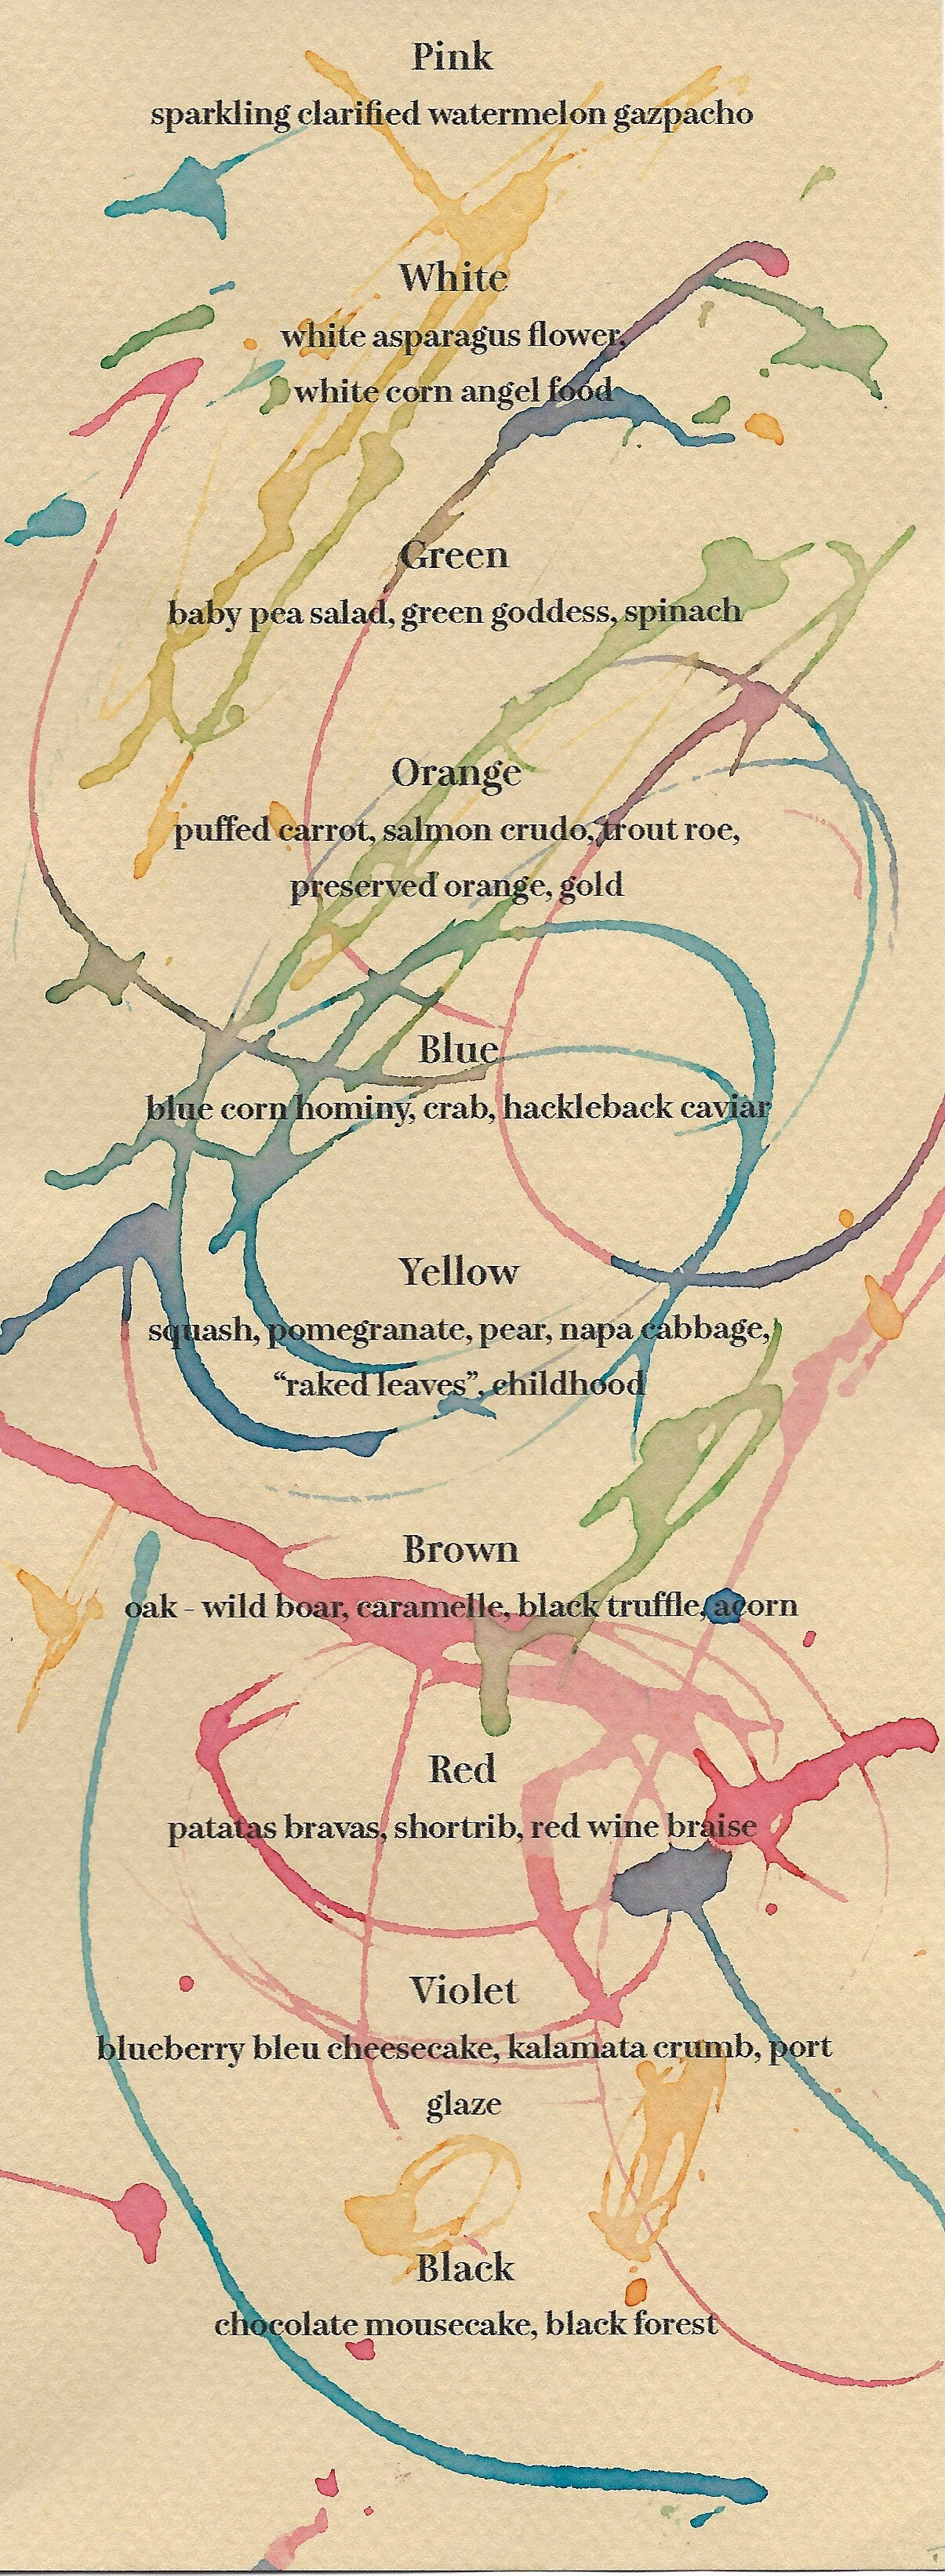 Pink
sparkling clarified watermelon gazpacho
White
white asparagus flower,
white corn angel food
Green
baby pea salad, green goddess, spinach
Orange
puffed carrot, salmon crudo, trout roe,
preserved orange, gold
Blue
blue corn hominy, crab, hackleback caviar
Yellow
squash, pomegranate, pear, napa cabbage,
“raked leaves”, childhood
Brown
oak - wild boar, caramelle, black truffle, acorn
Red
patatas bravas, shortrib, red wine braise
Violet
blueberry bleu cheesecake, kalamata crumb, port
glaze
Black
chocolate mousecake, black forest